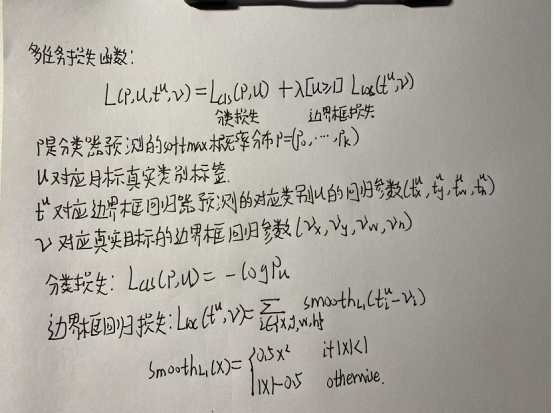 多任务损失函数:
L(P,u,tᵘ,v) = Lcls(P,u) + λ[u≥1] Lloc(tᵘ,v)
分类损失 边界框损失
P是分类器预测的softmax概率分布P=(P₀,…,Pₖ)
u对应目标真实类别标签.
tᵘ对应边界框回归器预测的对应类别u的回归参数(tᵘₓ,tᵘy,tᵘw,tᵘₕ)
v对应真实目标的边界框回归参数(vₓ,vy,vw,vₕ)
分类损失: Lcls(P,u) = -logPu
边界框回归损失: Lloc(tᵘ,v) = ∑ i∈{x,y,w,h} smoothL₁(tᵢᵘ-vᵢ)
smoothL₁(x) = { 0.5x² if |x|<1
|x|-0.5 otherwise.